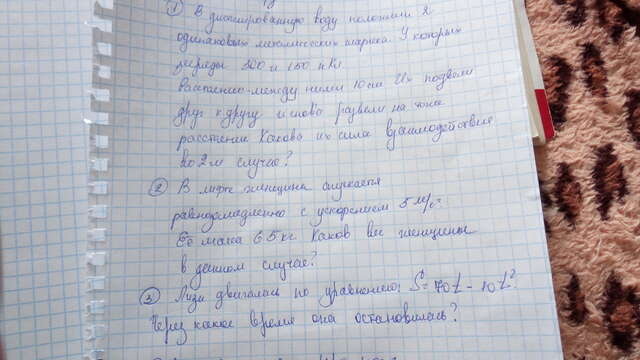 ① В дисцилированную воду положили 2
одинаковых металических шарика У которых
заряды 300 и 150 нКл
Растояние между ними 10 см Их подвели
друг к другу и снова развели на тоже
расстояние Какова их сила взаимодействия
во 2м случае?
② В лифте женщина спускается
равнозамедленно с ускорением 5 м/с²
Её масса 65 кг Каков вес женщины
в данном случае?
③ Лиза двигалась по уравнению: S = 70t - 10t²
Через какое время она остановилась?